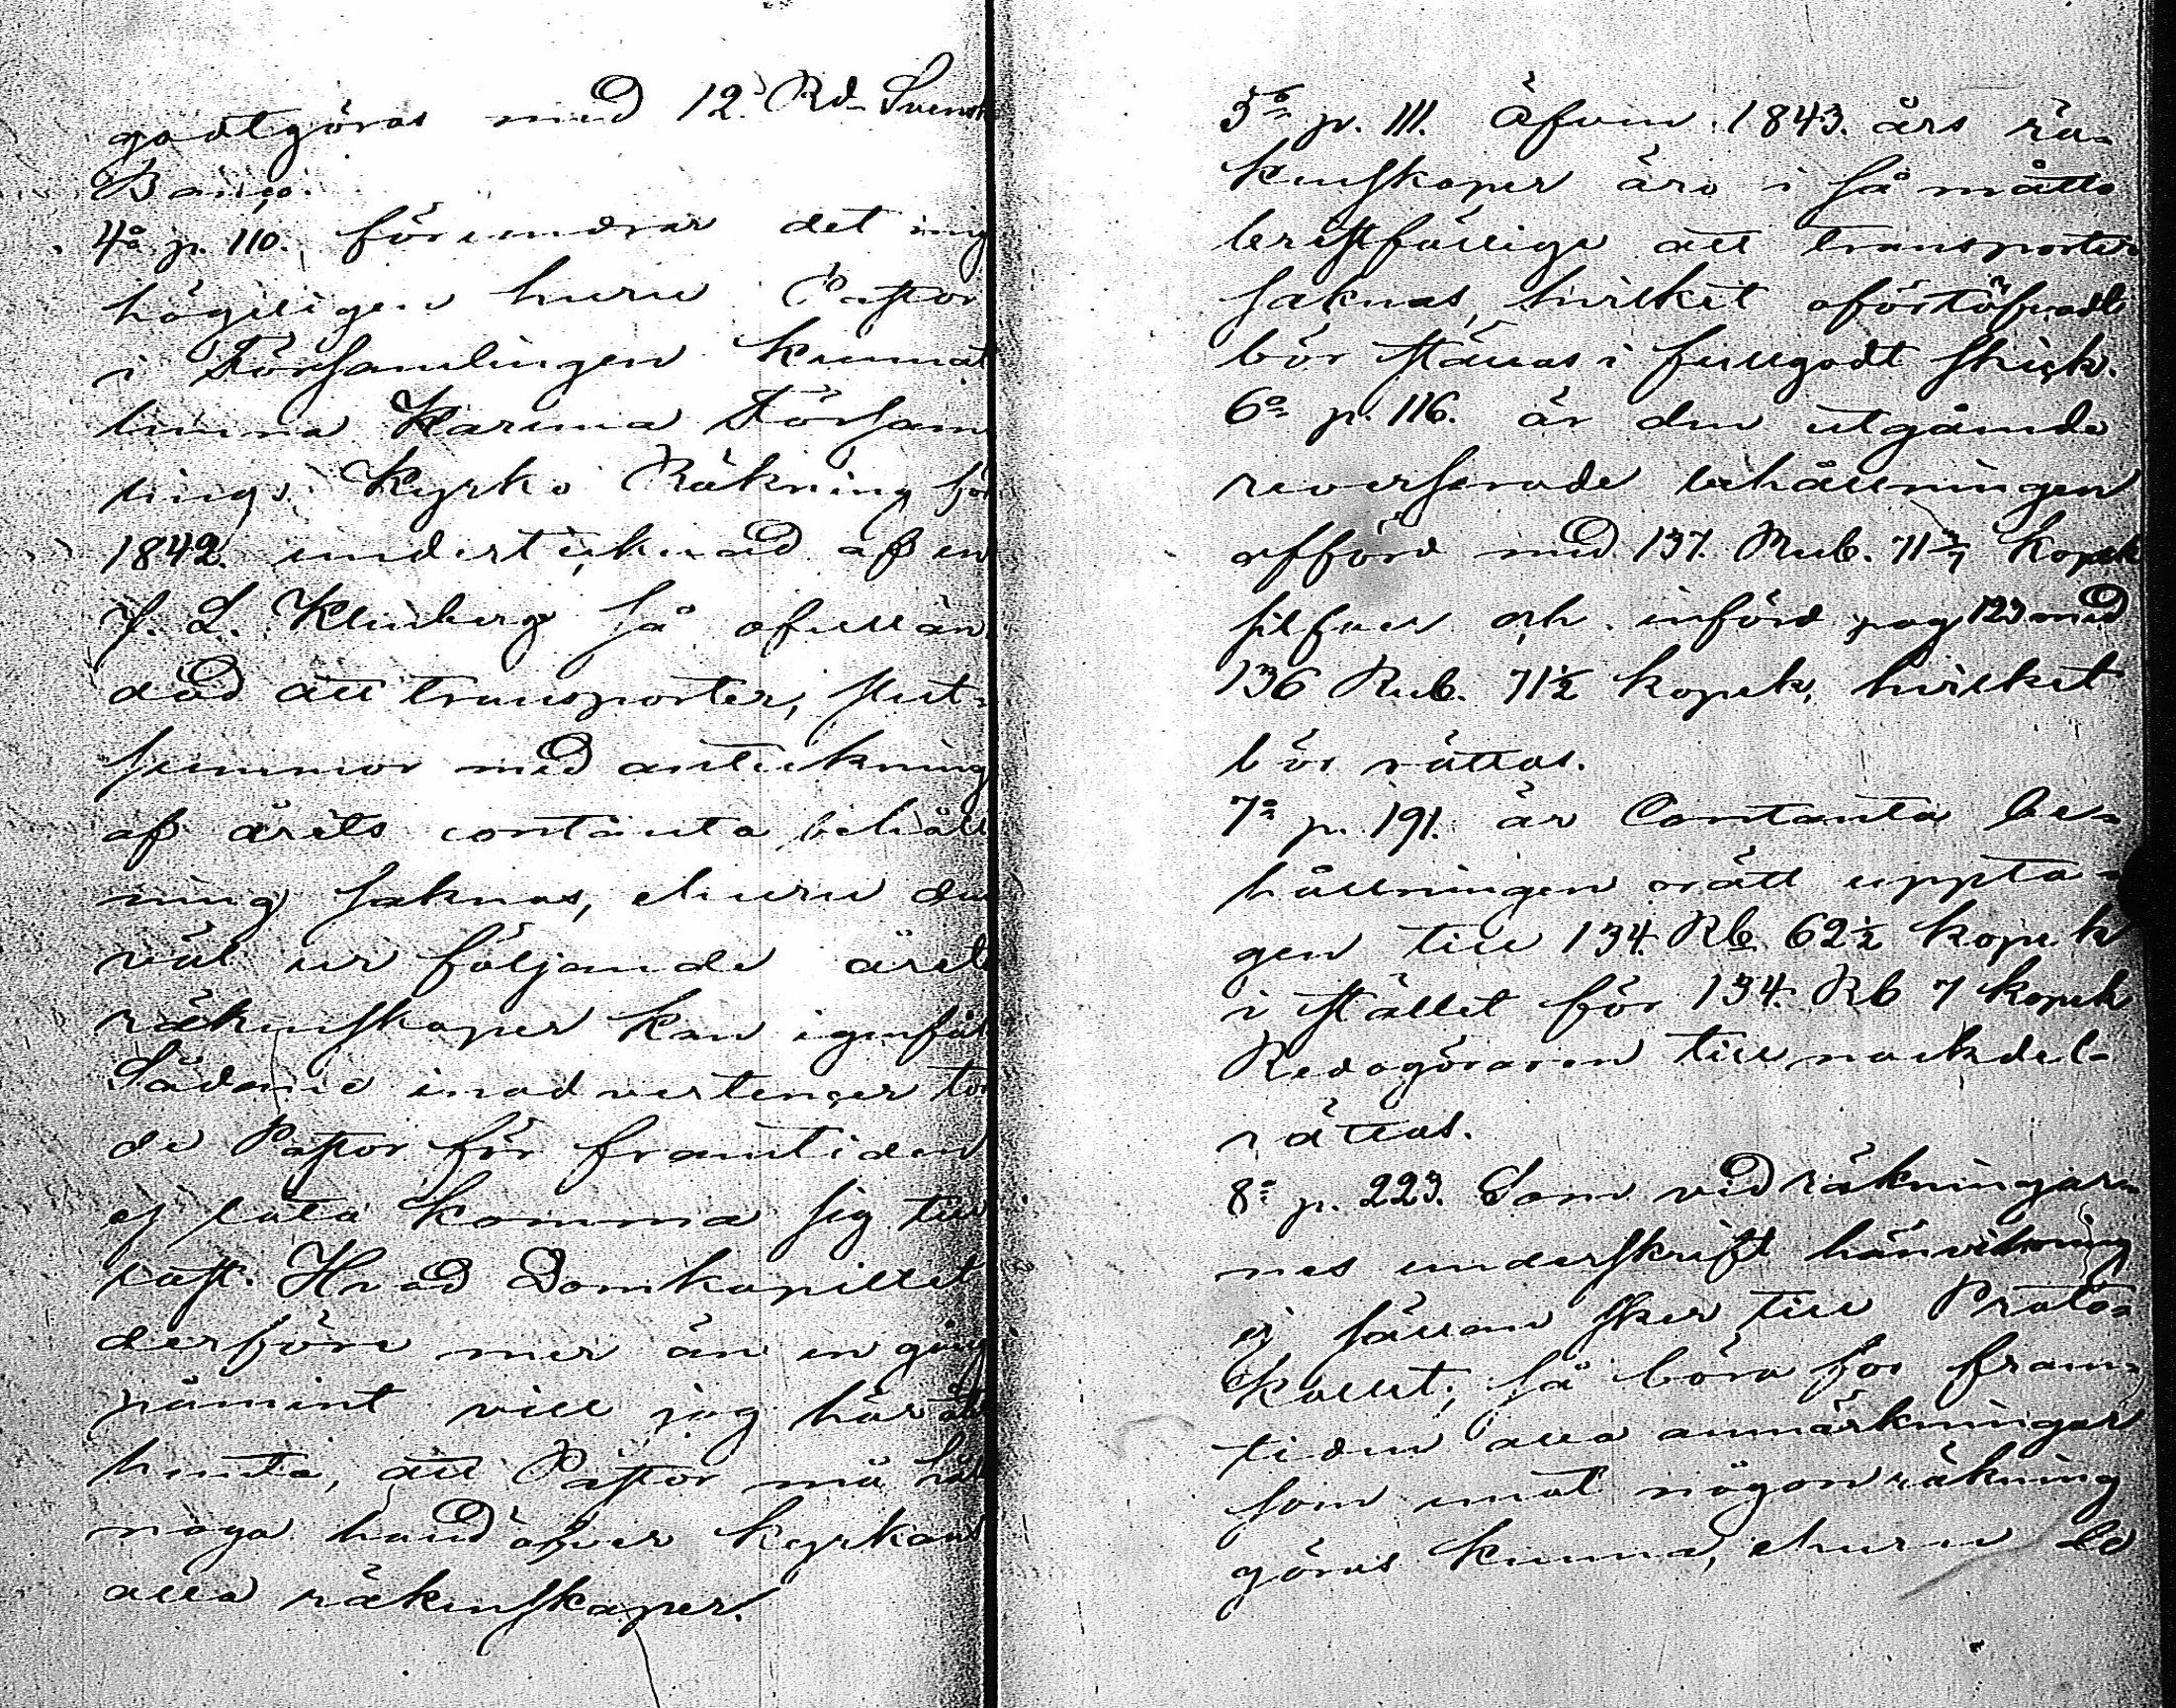 godtgöras med 12. Rd. Svensk
Banco.
4o p. 110. förundrar det mig
högeligen huru Pastor
i Församlingen kunnat
lemna Karuna Försam-
lings Kyrko Räkning för
1842. undertecknad af en
J. L. Klinberg så ofullän-
dad att transporter, slut-
summor med anteckning
af årets contanta behåll
ning saknas, ehuru den
väl ur följande årets
räkenskaper kan igenfås
Sådane inadvertencer tor
de Pastor för framtiden
ej låta komma sig till
last. Hvad Domkapitlet
derföre mer än en gång
påmint vill jag här åt
hinta, att Pastor må hål
noga hand öfver kyrkans
alla räkenskaper.
5o p. 111. Äfven 1843. års rä-
kenskaper äro i så måtto
bristfällige att transporter
saknas, hvilket oförtöfvadt
bör ställas i fullgodt skick.
6o p. 116. är den utgående
reverserade behållningen
afförd med 137. Rub. 71 3/7 Kopek
silfver och införd pag 123 med
136 Rub. 71 1/2 kopek, hvilket
bör rättas.
7o p. 191. är Contanta be-
hållningen orätt uppta-
gen till 134. Rb 62 1/2 kopek
i stället för 134. Rb 7 kopek
Redogöraren till nackdel-
rättas.
8o p. 223. Som vid räkningar-
nes underskrift hänvisning
ej sällan sker till Proto-
kollet; så böra för fram-
tiden alla anmärkningar
som emot någon räkning
göras kunna, ehuru de